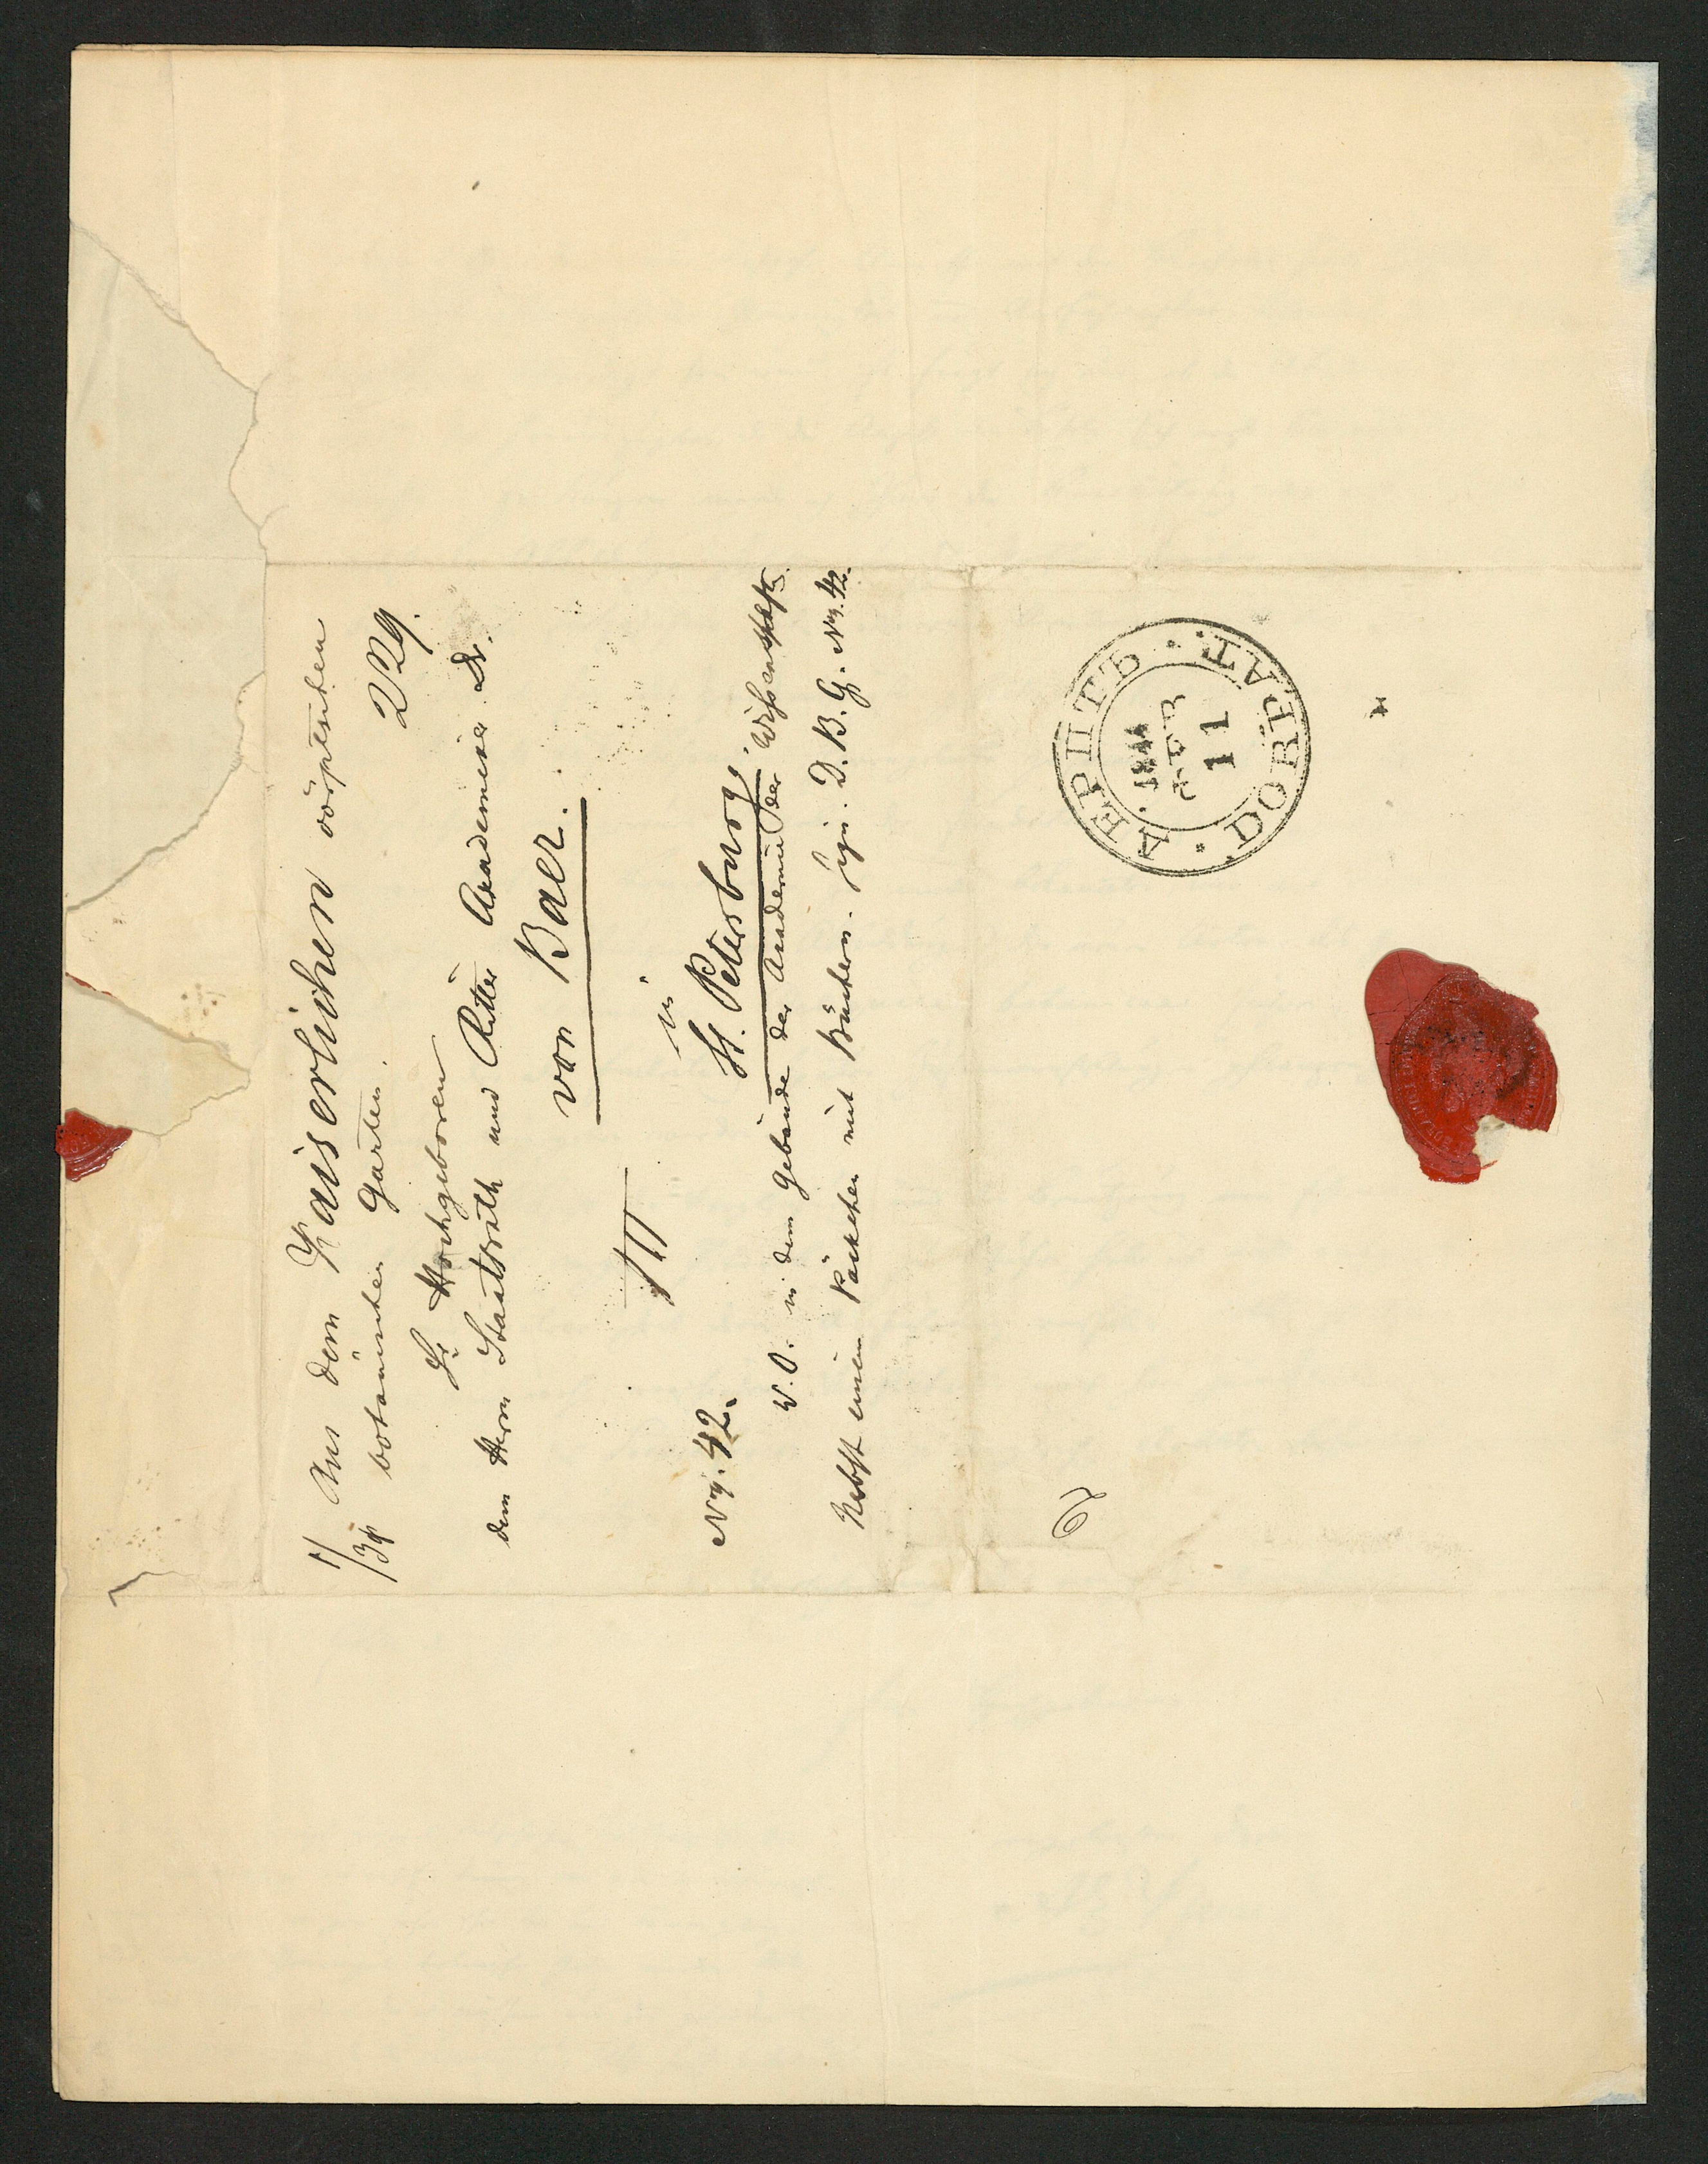 Aus dem Kaiserlichen dörptschen
botanischen Garten.
229.
Sr Hochgeboren
dem Herrn Staatsrath und Ritter Academiker Dr.
von Baer.
in
St. Petersburg.
No. 42.
W. O. in dem Gebäude der Academie der Wissenschaft.
Nebst einem Päckchen mit Büchern. sign. D. B. G. No. 42.
ДЕРПТЪ
1844
11
DORPAT